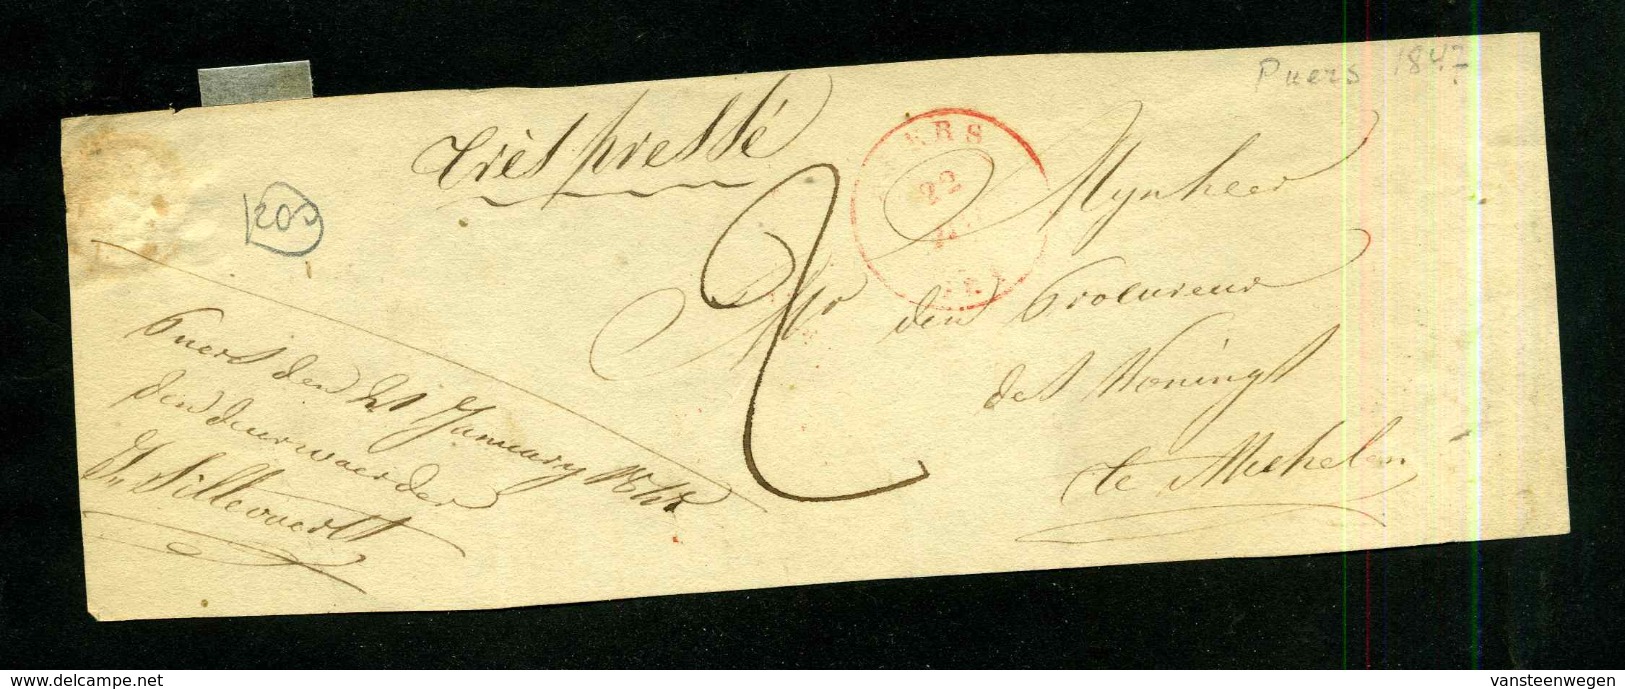 Puers 1847
Très pressé
PUERS
22
Mynheer
Mr den Procureur
des Konings
te Mechelen
Puers den 21 January
den deurwaerder
delcampe.net
vansteenwegen